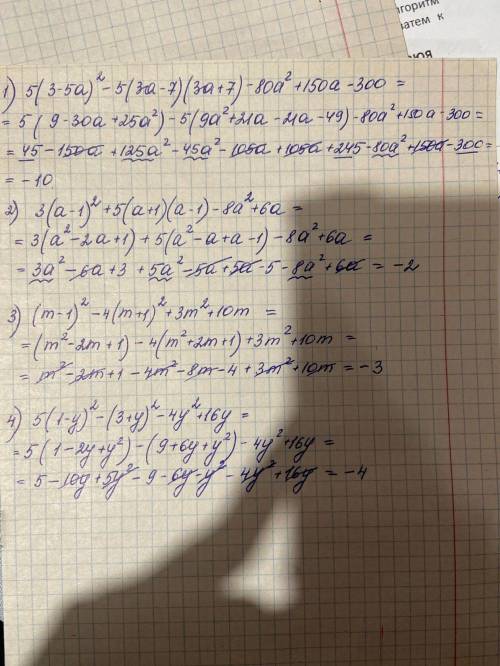 лгоритм
ватем к
1) 5(3-5a)² - 5(3a-7)(3a+7) - 80a² + 150a - 300 =
= 5(9-30a+25a²) - 5(9a²+21a-21a-49) - 80a²+150a-300 =
= 45 - 150a + 125a² - 45a² - 105a + 105a + 245 - 80a² + 150a - 300 =
= -10
2) 3(a-1)² + 5(a+1)(a-1) - 8a² + 6a =
= 3(a²-2a+1) + 5(a²-a+a-1) - 8a² + 6a =
= 3a² - 6a + 3 + 5a² - 5a + 5a - 5 - 8a² + 6a = -2
3) (m-1)² - 4(m+1)² + 3m² + 10m =
= (m²-2m+1) - 4(m²+2m+1) + 3m² + 10m =
= m² - 2m + 1 - 4m² - 8m - 4 + 3m² + 10m = -3
4) 5(1-y)² - (3+y)² - 4y² + 16y =
= 5(1-2y+y²) - (9+6y+y²) - 4y² + 16y =
= 5 - 10y + 5y² - 9 - 6y - y² - 4y² + 16y = -4